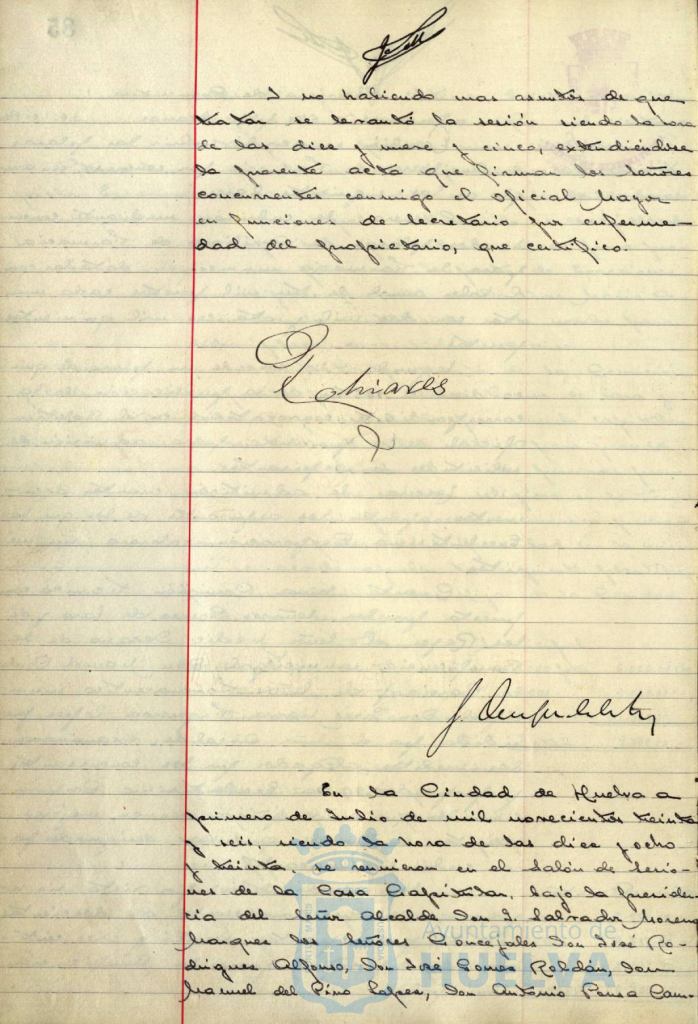 I no habiendo mas asuntos de que
tratar se levantó la sesión siendo la hora
de las diez y nueve y cinco, extendiendose
la presente acta que firman los señores
concurrentes conmigo el Oficial Mayor
en funciones de Secretario por enferme-
dad del propietario, que certifico.
En la Ciudad de Huelva a
primero de Julio de mil novecientos treinta
y seis, siendo la hora de las diez y ocho
y treinta, se reunieron en el Salón de Sesio-
nes de la Casa Capitular, bajo la presiden-
cia del Señor Alcalde Don S. Salvador Moreno
Marquez los Señores Concejales Don José Ro-
driguez Alfonso, Don José Gomez Roldán, Don
Manuel del Pino Lopez, Don Antonio Ponsa Cam-
Ayuntamiento de
HUELVA
85